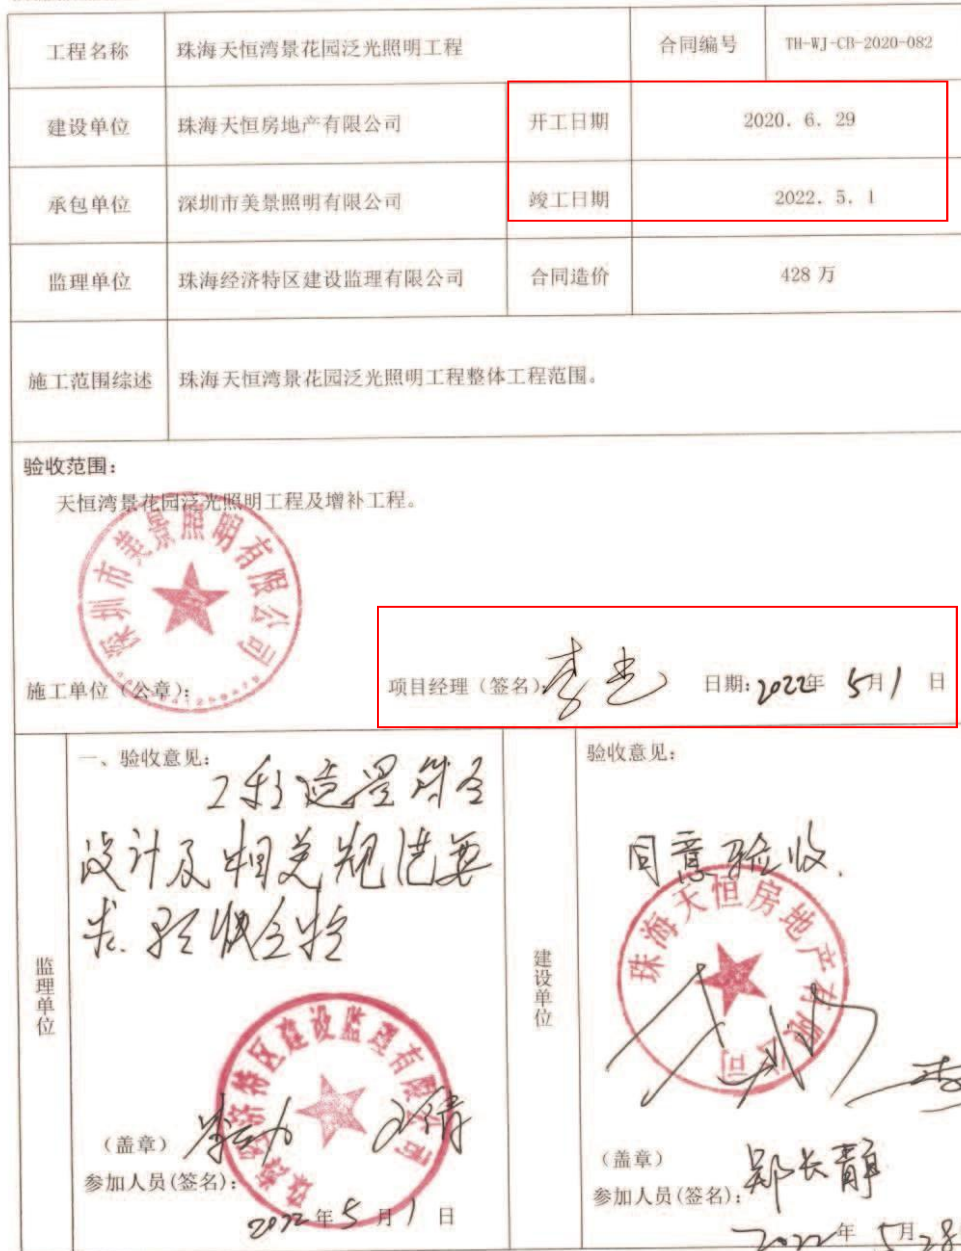 工程名称 珠海天恒湾景花园泛光照明工程 合同编号 TH-WJ-CB-2020-082
建设单位 珠海天恒房地产有限公司 开工日期 2020. 6. 29
承包单位 深圳市美景照明有限公司 竣工日期 2022. 5. 1
监理单位 珠海经济特区建设监理有限公司 合同造价 428 万
施工范围综述 珠海天恒湾景花园泛光照明工程整体工程范围。
验收范围:
天恒湾景花园泛光照明工程及增补工程。
深圳市美景照明有限公司
施工单位（公章）: 项目经理（签名） 日期: 2022年 5月1 日
监理单位
一、验收意见:
工程质量符合
设计及相关规范要
求. 验收合格
珠海经济特区建设监理有限公司
（盖章）
参加人员(签名):
2022年5月1日
建设单位
验收意见:
同意验收.
珠海天恒房地产有限公司
（盖章）
参加人员(签名): 郑长静
2022年 5月28